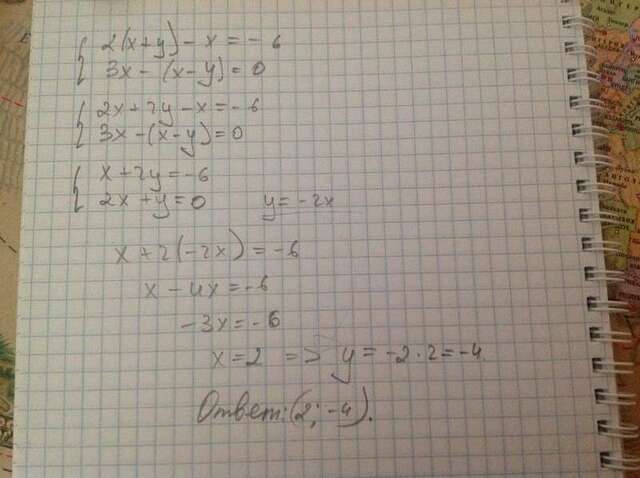 2(x+y)-x=-6
3x-(x-y)=0
2x+2y-x=-6
3x-(x-y)=0
x+2y=-6
2x+y=0 y=-2x
x+2(-2x)=-6
x-4x=-6
-3x=-6
x=2 => y=-2·2=-4
Ответ:(2;-4).